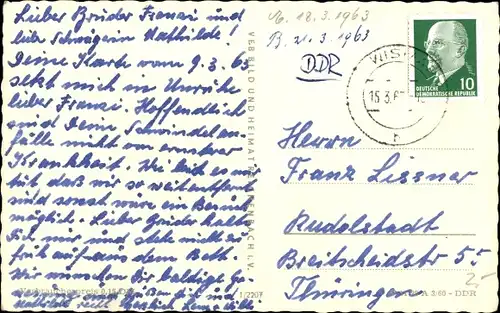 Lieber Bruder Franzi und
liebe Schwägerin Mathilde!
Deine Karte vom 9.3.63
setzt mich in Unruhe
lieber Franzi. Hoffendlich
sind Deine Schwindelan-
fälle nicht von ernster
Krankheit. Wie leid es mir
tut daß wir so weit entfernt
sind sonst wäre ein Besuch
möglich. Lieber Bruder halte
Dich nur und stehe nicht zu
früh auf aus dem Bett.
Wir wünschen Dir baldige Ge-
Mathilde recht herzlich
VEB BILD UND HEIMAT REICHENBACH I. V.
Verbraucherpreis 0,15
1/2207
18.3.1963
B. 21.3.1963
DDR
15.3.6
10
DEUTSCHE
DEMOKRATISCHE REPUBLIK
Herrn
Franz Lissner
Rudolstadt
Breitscheidstr 55
Thüringen
3/60 - DDR